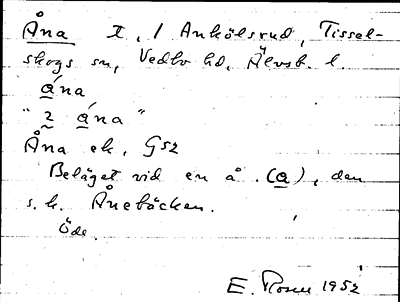 Åna I, 1 Ankölsrud, Tissel-
skogs sn, Vedbo hd, Älvsb. l.
ána
"2 ána"
Åna ek, G52
Beläget vid en å (a), den
s.k. Ånebäcken.
Öde.
E. Rosen 1952